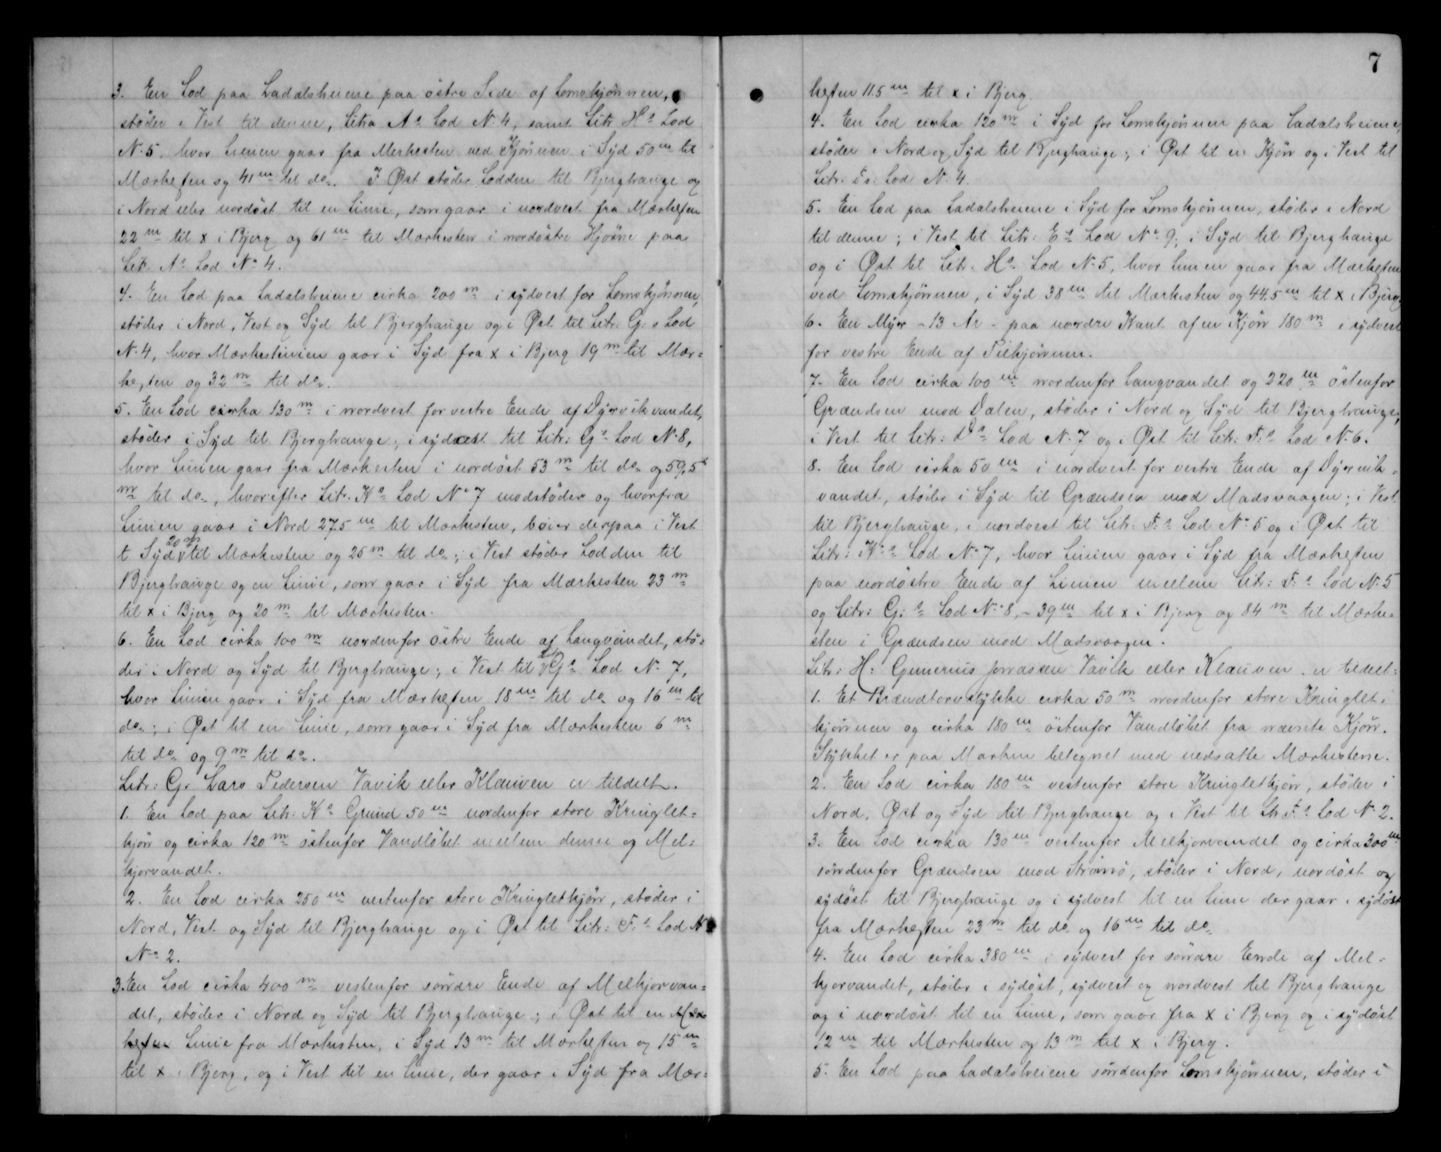 3. En Lod paa Ladalsheiene paa östre Side af Lomskjønnen,
støder i Vest til denne, Litra Aª Lod N. 4, samt Litr. Hª Lod
N. 5, hvor Linien gaar fra Merkesten ved Kjønnen i Syd 50 m til
Mærkesten og 41 m til do. I Øst støder Lodden til Bjerghange og
i Nord eller nordøst til en Linie, som gaar i nordvest fra Mærkesten
22 m til x i Bjerg og 61 m til Mærkesten i nordøstre Hjørne paa
Litr. Aª Lod No 4.
4. En Lod paa Ladalsheiene cirka 200 m i sydvest for Lomskjønnen,
støder i Nord, Vest og Syd til Bjerghange og i Øst til Litr. G. s Lod
N. 4, hvor Mærkeslinien gaar i Syd fra x i Bjerg 19 m til Mær=
kesten og 32 m til do.
5. En Lod cirka 130 m i nordvest for vestre Ende af Dyrvikvandet,
støder i Syd til Bjerghange; i sydøst til Litr: Gª Lod N. 8,
hvor Linien gaar fra Mærkesten i nordøst 53 m til do og 59,5
m til do, hvorefter Litr. Kª Lod No 7 modstøder og hvorfra
Linien gaar i Nord 27,5 m til Mærkesten, böier derpaa i Vest
t. Syd 20 m til Mærkesten og 25 m til do; i Vest støder Lodden til
Bjerghange og en Linie, som gaar i Syd fra Mærkesten 23 m
til x i Bjerg og 20 m til Mærkesten.
6. En Lod cirka 100 m nordenfor östre Ende af Langvandet, stö=
der i Nord og Syd til Bjerghange; i Vest til Gª Lod N. 7,
hvor Linien gaar i Syd fra Mærkesten 18 m til do og 16 m til
do; i Øst til en Linie, som gaar i Syd fra Mærkesten 6 m
til do og 9 m til do.
Litr: G. Lars Pedersen Vavik eller Klauven er tildelt.
1. En Lod paa Litr: Kª Grund 50 m nordenfor store Kringlet=
kjön og cirka 120 m østenfor Vandløbet mellem denne og Mel=
kjorvandet.
2. En Lod cirka 250 m vestenfor store Kringletkjørn, støder i
Nord, Vest og Syd til Bjerghange og i Øst til Litr: F.ª Lod N
No 2.
3. En Lod cirka 400 m vestenfor søndre Ende af Melkjorvan=
det, støder i Nord og Syd til Bjerghange; i Øst til en
Linie fra Mærkesten, i Syd 13 m til Mærkesten og 15 m
til x i Bjerg, og i Vest til en Linie, der gaar i Syd fra Mær=
7
kesten 115 m til x i Bjerg.
4. En Lod cirka 120 m i Syd for Lomskjønnen paa Ladalsheiene,
støder i Nord og Syd til Bjerghange; i Øst til en Kjørn og i Vest til
Litr. F.s Lod N. 4.
5. En Lod paa Ladalsheiene i Syd for Lomskjønnen, støder i Nord
til denne; i Vest til Litr: Eª Lod No 9; i Syd til Bjerghange
og i Øst til Litr: Hª Lod N. 5, hvor Linien gaar fra Mærkesten
ved Lomskjønnen, i Syd 38 m til Mærkesten og 44,5 m til x i Bjerg.
6. En Myr - 13 Ar - paa nordre Kant af en Kjørn 180 m i sydvest
for vestre Ende af Piekjønnen.
7. En Lod cirka 100 m nordenfor Langvandet og 220 m östenfor
Grændsen mod Dalen, støder i Nord og Syd til Bjerghange;
i Vest til Litr: Dª Lod N. 7 og i Øst til Litr. F.ª Lod N. 6.
8. En Lod cirka 50 m i nordvest for vestre Ende af Dyrvik=
vandet, støder i Syd til Grændsen mod Madsvaagen; i Vest
til Bjerghange, i nordvest til Litr: F.ª Lod No 5 og i Øst til
Litr: Kª Lod No 7, hvor Linien gaar i Syd fra Mærkesten
paa nordøstre Ende af Linien mellem Litr: F.ª Lod N. 5
og Litr: G.ª Lod No 8, - 39 m til x i Bjerg og 84 m til Mærke=
sten i Grændsen mod Madsvaagen.
Litr: H: Gunerius Jonassen Vavik eller Klauven er tildelt:
1. Et Brændtorvstykke cirka 50 m nordenfor store Kringlet=
kjønnen og cirka 180 m östenfor Vandløbet fra nævnte Kjørn.
Stykket er paa Marken betegnet med nedsatte Mærkestene.
2. En Lod cirka 180 m vestenfor store Kringletkjørn, støder i
Nord, Øst og Syd til Bjerghange og i Vest til Litr F.ª Lod No 2.
3. En Lod cirka 130 m vestenfor Melkjorvandet og cirka 300 m
søndenfor Grændsen mod Strömsö, støder i Nord, nordøst og
sydøst til Bjerghange og i sydvest til en Linie der gaar i sydøst
fra Mærkesten 23 m til do og 16 m til do.
4. En Lod cirka 380 m i sydvest for søndre Ende af Mel=
kjorvandet, støder i sydøst, sydvest og nordvest til Bjerghange
og i nordøst til en Linie, som gaar fra x i Bjerg og i sydøst
12 m til Mærkesten og 13 m til x i Bjerg.
5. En Lod paa Ladalsheiene søndenfor Lomskjønnen, støder i